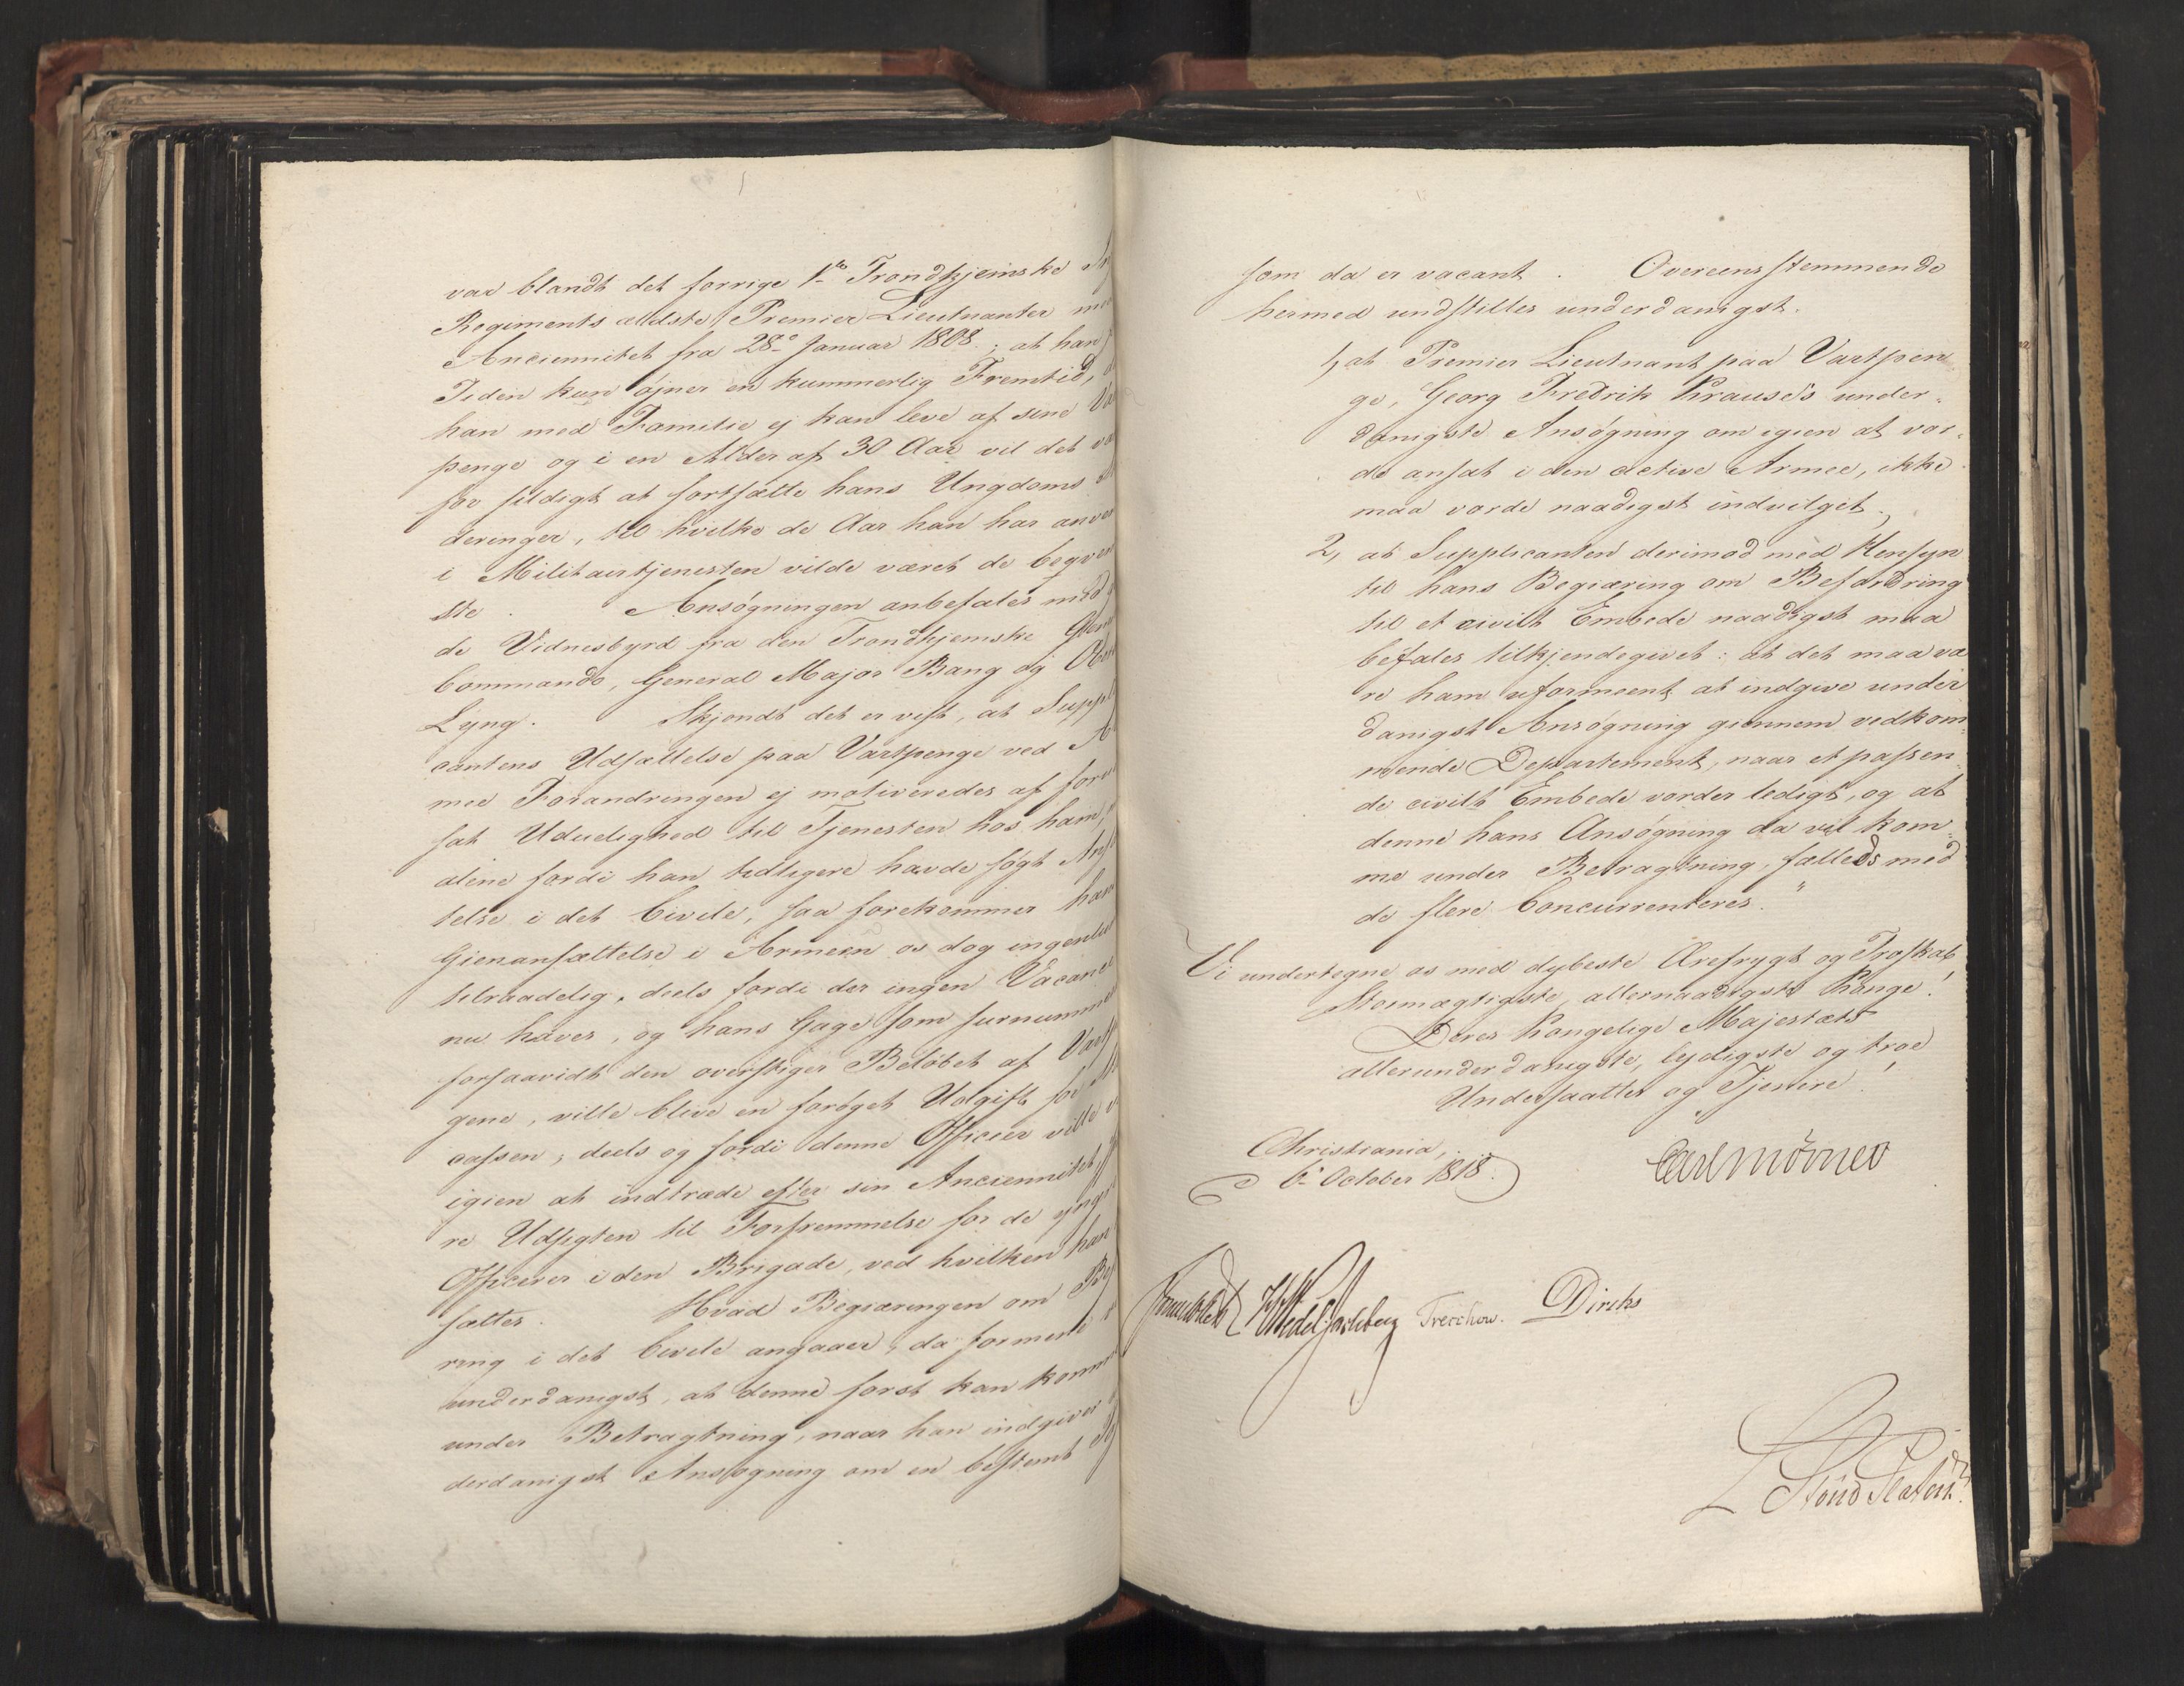 var blandt det forrige 1ste Trondhjemske
Regiments ældste Premier Lieutnanter
Anciennitet fra 28de Januar 1808; at han
Tiden kun øjner en kummerlig Fremtid,
han med Familie ej kan leve af sine
penge og i en Alder af 30 Aar vil det
for sildigt at fortsætte hans Ungdoms
deringer, til hvilke de Aar han har
i Militairtjenesten vilde været de
ste. Ansøgningen anbefales
de Vidnesbyrd fra den Trondhjemske
Commando, General Major Bang og
Lyng. Skjøndt det er vist, at
cantens Udsættelse paa Vartpenge ved
mee Forandringen ej motiveredes af
sat Uduelighed til Tjenesten hos ham,
alene fordi han tidligere havde søgt
telse i det Civile, saa forekommer
Gienansættelse i Armeen os dog
tilraadelig, deels fordi der ingen
nu haves, og hans Gage som
forsaavidt den overstiger Beløbet af
gene, ville blive en forøget Udgift for
cassen; deels og fordi denne Officier ville
igien at indtræde efter sin Anciennitet
re Udsigten til Forfremmelse for de
Officerer i den Brigade, ved hvilken han
sættes. Hvad Begiæringen om
ring i det Civile angaaer, da formene
underdanigst, at denne først kan
under Betragtning, naar han indgiver
derdanigst Ansøgning om en bestemt
som da er vacant. Overeensstemmende
hermed indstilles underdanigst.
1, at Premier Lieutnant paa Vartpen
ge, Georg Fredrik Krause's under-
danigste Ansøgning om igien at vor-
de ansat i den active Armee, ikke
maa vorde naadigst indvilget.,
2, at Supplicanten derimod med Hensyn
til hans Begiæring om Befordring
til et civilt Embede naadigst maa
befales tilkjendegivet: at det maa væ
re ham uformeent at indgive under
danigst Ansøgning giennem vedkom
mende Departement, naar et passen-
de civilt Embede vorder ledigt, og at
denne hans Ansøgning da vil kom-
me under Betragtning, fælleds med
de flere Concurrenteres."
Vi undertegne os med dybeste Ærefrygt og Troskab
Stormægtigste, allernaadigste Konge!
Deres Kongelige Majestæts
allerunderdanigste, lydigste og troe
Undersaatter og Tjenere!
Christiania,
6te October 1818.
Carl Mörner
Sommerhielm HWedel Jarlsberg Treschow. Diriks